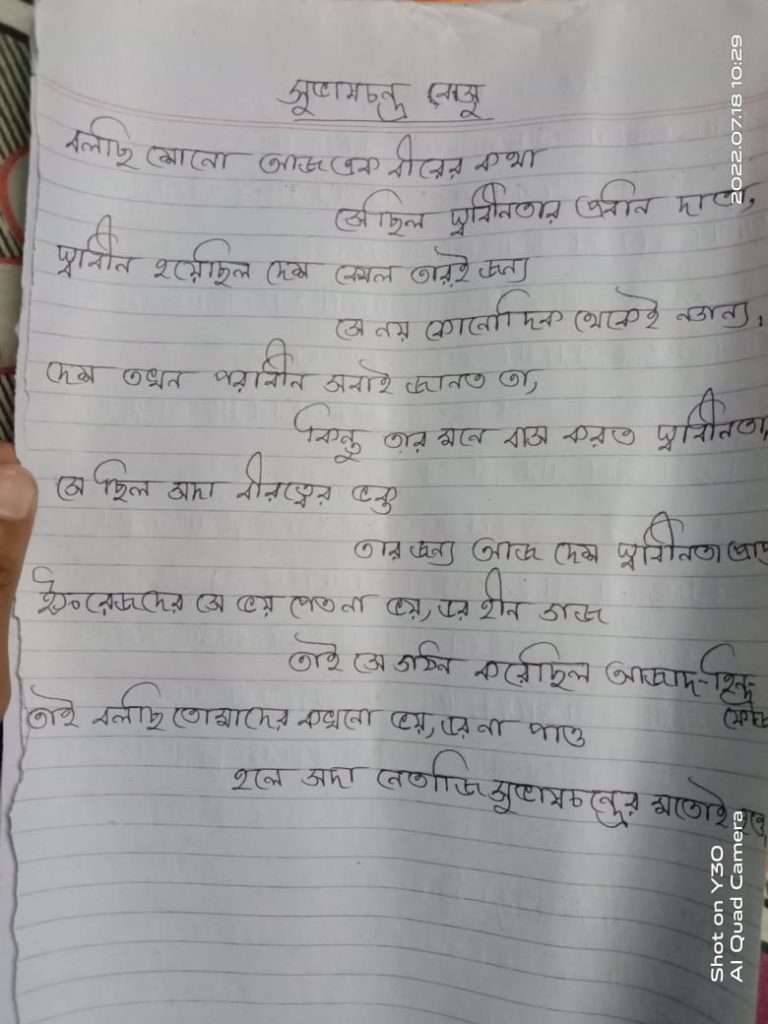 সুভাসচন্দ্র বোসু
বলছি শোনো আজ এক বীরের কথা
সে ছিল স্বাধীনতার প্রধান দাতা,
স্বাধীন হয়েছিল দেশ কেবল তারই জন্য
সে নয় কোনো দিক থেকেই নগন্য,
দেশ তখন পরাধীন সবাই জানত তা,
কিন্তু তার মনে বাস করত স্বাধীনতা,
সে ছিল সদা বীরত্বের ভক্ত
তার জন্য আজ দেশ স্বাধীনতা
ইংরেজদের সে ভয় পেত না ভয়,
তাই সে গঠন করেছিল আজাদ-হিন্দ
ফৌজ
তাই বলছি তোমাদের কখনো ভয়, না পাও
হলে সদা নেতাজি সুভাসচন্দ্রের মতোই
2022.07.18 10:29
Shot on Y30
AI Quad Camera